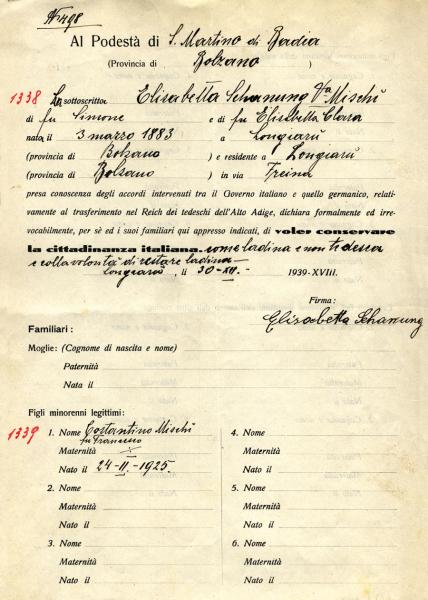 N. 498
Al Podestà di S. Martino di Badia
(Provincia di Bolzano )
1338 La sottoscritta Elisabetta Schanung Va Mischi
di fu Simone e di fu Elisabetta Clara
nata il 3 marzo 1883 a Longiarù
(provincia di Bolzano ) e residente a Longiarù
(provincia di Bolzano ) in via Freina
presa conoscenza degli accordi intervenuti tra il Governo italiano e quello germanico, relati-
vamente al trasferimento nel Reich dei tedeschi dell'Alto Adige, dichiara formalmente ed irre-
vocabilmente, per sè ed i suoi familiari qui appresso indicati, di voler conservare
la cittadinanza italiana. come ladina e non tedesca
e colla volontà di restare ladina
Longiarù, li 30-XII.- 1939-XVIII.
Firma:
Elisabetta Schanung
Familiari:
Moglie: (Cognome di nascita e nome)
Paternità
Nata il
Figli minorenni legittimi:
1339 1. Nome Costantino Mischi
fu Francesco
Maternità
Nato il 24-II-1925.
2. Nome
Maternità
Nato il
3. Nome
Maternità
Nato il
4. Nome
Maternità
Nato il
5. Nome
Maternità
Nato il
6. Nome
Maternità
Nato il